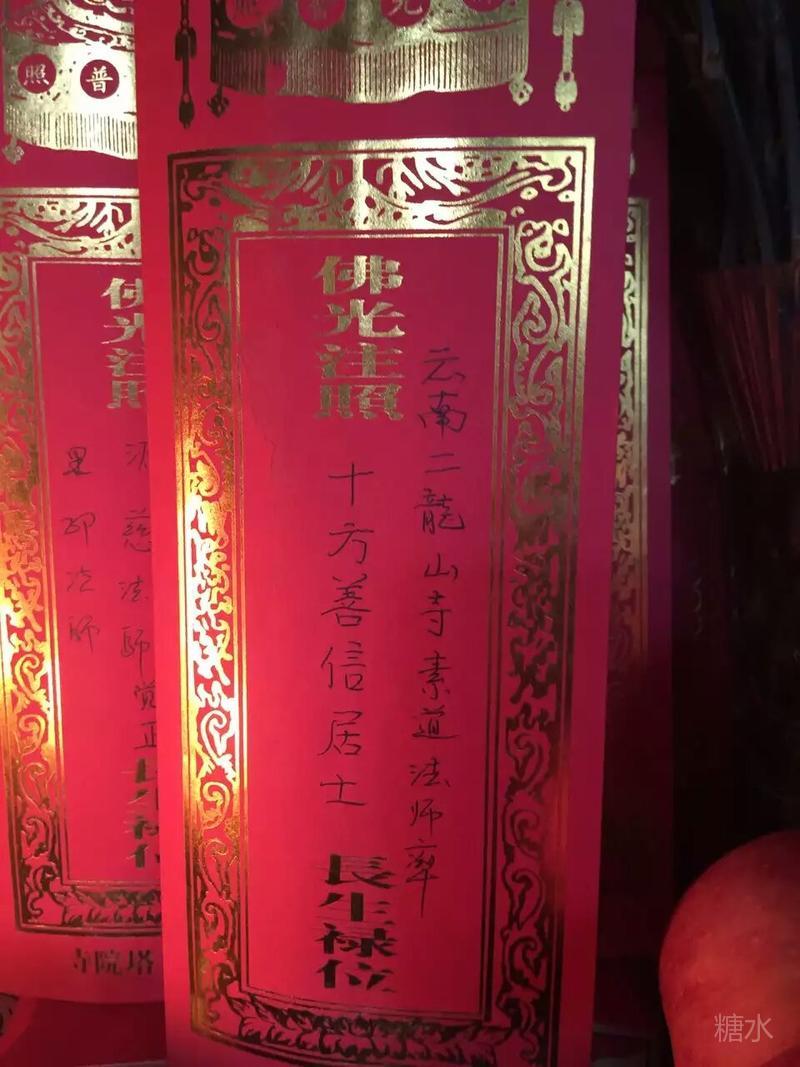 普照
佛光注照
云南二龍山寺素道法师率
十方善信居士
長生禄位
佛光注照
慈法師覚正
印法師
長生禄位
寺院塔
糖水